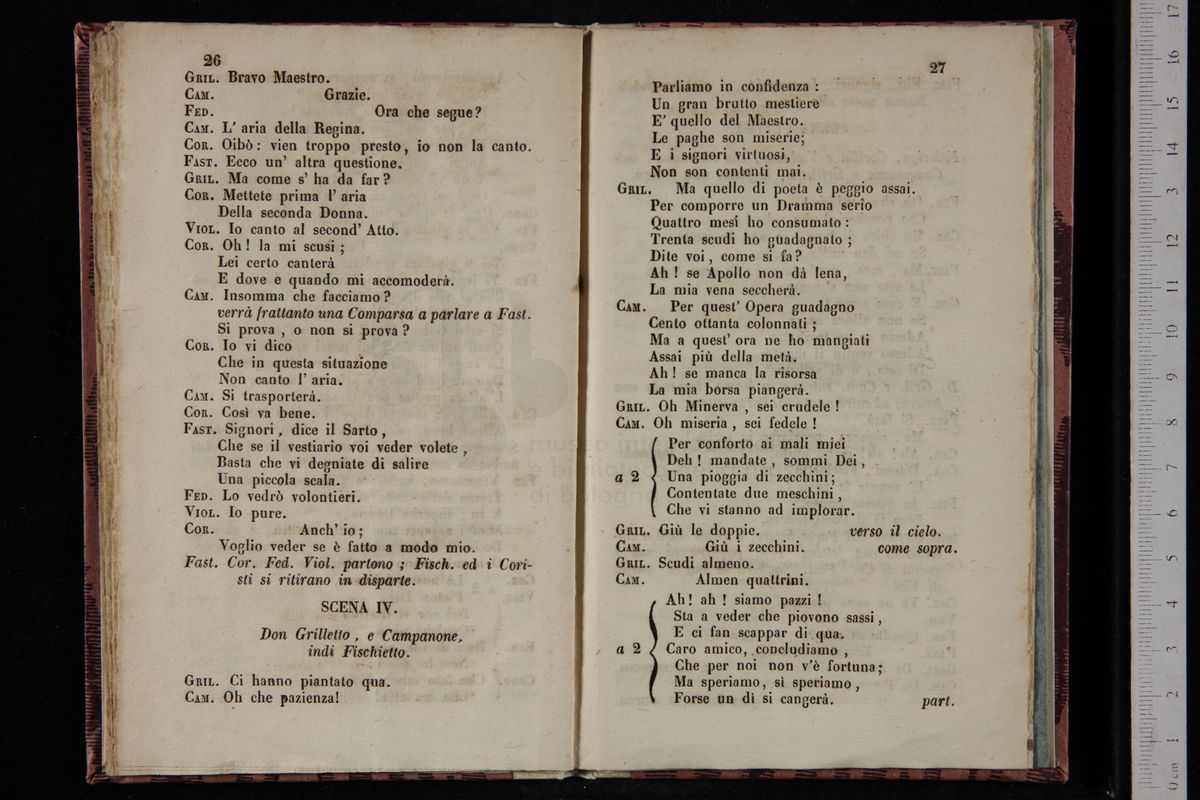 26
GRIL. Bravo Maestro.
CAM. Grazie.
FED. Ora che segue?
CAM. L' aria della Regina.
COR. Oibò: vien troppo presto, io non la canto.
FAST. Ecco un' altra questione.
GRIL. Ma come s' ha da far?
COR. Mettete prima l' aria
Della seconda Donna.
VIOL. Io canto al second' Atto.
COR. Oh! la mi scusi;
Lei certo canterà
E dove e quando mi accomoderà.
CAM. Insomma che facciamo?
verrà frattanto una Comparsa a parlare a Fast.
Si prova, o non si prova?
COR. Io vi dico
Che in questa situazione
Non canto l' aria.
CAM. Si trasporterà.
COR. Così va bene.
FAST. Signori, dice il Sarto,
Che se il vestiario voi veder volete,
Basta che vi degniate di salire
Una piccola scala.
FED. Lo vedrò volontieri.
VIOL. Io pure.
COR. Anch' io;
Voglio veder se è fatto a modo mio.
Fast. Cor. Fed. Viol. partono; Fisch. ed i Cori-
sti si ritirano in disparte.
SCENA IV.
Don Grilletto, e Campanone,
indi Fischietto.
GRIL. Ci hanno piantato qua.
CAM. Oh che pazienza!
27
Parliamo in confidenza:
Un gran brutto mestiere
E' quello del Maestro.
Le paghe son miserie;
E i signori virtuosi,
Non son contenti mai.
GRIL. Ma quello di poeta è peggio assai.
Per comporre un Dramma serio
Quattro mesi ho consumato:
Trenta scudi ho guadagnato;
Dite voi, come si fa?
Ah! se Apollo non dà lena,
La mia vena seccherà.
CAM. Per quest' Opera guadagno
Cento ottanta colonnati;
Ma a quest' ora ne ho mangiati
Assai più della metà.
Ah! se manca la risorsa
La mia borsa piangerà.
GRIL. Oh Minerva, sei crudele!
CAM. Oh miseria, sei fedele!
Per conforto ai mali miei
Deh! mandate, sommi Dei,
a 2 Una pioggia di zecchini;
Contentate due meschini,
Che vi stanno ad implorar.
GRIL. Giù le doppie. verso il cielo.
CAM. Giù i zecchini. come sopra.
GRIL. Scudi almeno.
CAM. Almen quattrini.
Ah! ah! siamo pazzi!
Sta a veder che piovono sassi,
E ci fan scappar di qua.
a 2 Caro amico, concludiamo,
Che per noi non v'è fortuna;
Ma speriamo, sì speriamo,
Forse un dì si cangerà. part.